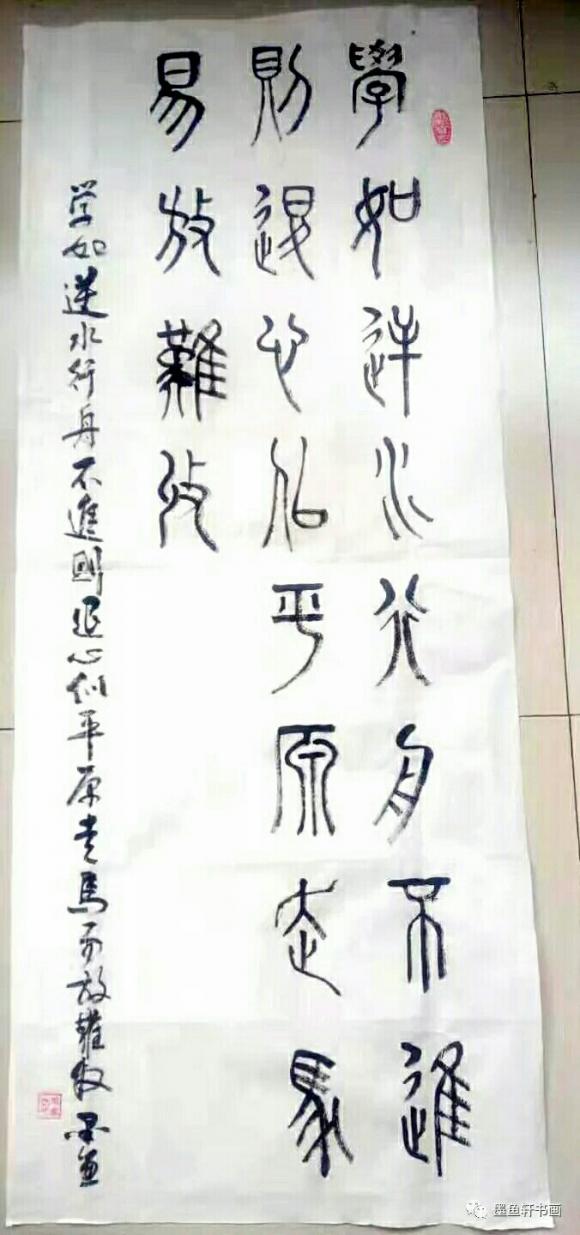 學如逆水行舟不進
則退心似平原走馬
易放難收
学如逆水行舟不進則退心似平原走馬易放難收墨鱼
墨鱼轩书画